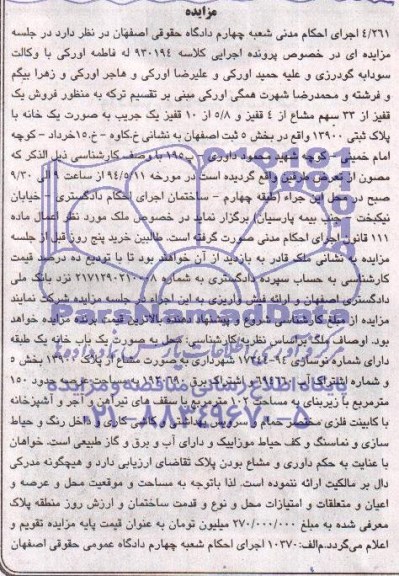 مزایده
۴/۲۶۱ اجرای احکام مدنی شعبه چهارم دادگاه حقوقی اصفهان در نظر دارد در جلسه
مزایده ای در خصوص پرونده اجرایی کلاسه ۹۳۰۱۹۴ له فاطمه اورکی با وکالت
سودابه گودرزی و علیه حمید اورکی و علیرضا اورکی و هاجر اورکی و زهرا بیگم
و فرشته و محمدرضا شهرت همگی اورکی مبنی بر تقسیم ترکه به منظور فروش یک
قفیز از ۳۳ سهم مشاع از ۴ قفیز و ۵/۸ از ۱۰ قفیز یک جریب به صورت یک خانه با
پلاک ثبتی ۱۳۹۰۰ واقع در بخش ۵ ثبت اصفهان به نشانی خ.کاوه - خ.۱۵خرداد - کوچه
امام خمینی - کوچه شهید محمود داوری - پ۱۹۵ با وصف کارشناسی ذیل الذکر که
مصون از تعرض طرفین واقع گردیده است در مورخه ۹۴/۵/۱۱ از ساعت ۹ الی ۹/۳۰
صبح در محل این اجراء (طبقه چهارم - ساختمان اجرای احکام دادگستری - خیابان
نیکبخت - جنب بیمه پارسیان) برگزار نماید در خصوص ملک مورد نظر اعمال ماده
۱۱۱ قانون اجرای احکام مدنی صورت گرفته است. طالبین خرید پنج روز قبل از جلسه
مزایده به نشانی ملک قادر به بازدید از آن خواهند بود تا با تودیع ده درصد قیمت
کارشناسی به حساب سپرده دادگستری به شماره ۲۱۷۱۲۹۰۲۱۰۰۰۰ نزد بانک ملی
دادگستری اصفهان و ارائه فیش واریزی به این اجراء در جلسه مزایده شرکت نمایند
مزایده از مبلغ کارشناسی شروع و پیشنهاد دهنده بالاترین قیمت برنده مزایده خواهد
بود. اوصاف ملک براساس نظریه کارشناسی: محل به صورت یک باب خانه یک طبقه
دارای شماره نوسازی ۹۴-۱۷۲۴۴ شهرداری به صورت مشاع از پلاک ۱۳۹۰۰ بخش ۵
و شماره اشتراک آب و اشتراک برق به مساحت عرصه حدود ۱۵۰
مترمربع با زیربنای به مساحت ۱۰۲ مترمربع با سقف های تیرآهن و آجر و آشپزخانه
با کابینت فلزی مختصر حمام و سرویس بهداشتی و کاشی کاری و داخل رنگ و حیاط
سازی و نماسنگ و کف حیاط موزاییک و دارای آب و برق و گاز طبیعی است. خواهان
با عنایت به حکم داوری و مشاع بودن پلاک تقاضای ارزیابی دارد و هیچگونه مدرکی
دال بر مالکیت ارائه ننموده است. لذا باتوجه به مساحت و موقعیت محل و عرصه و
اعیان و متعلقات و امتیازات محل و نوع و قدمت ساختمان و ارزش روز منطقه پلاک
معرفی شده به مبلغ ۲۷۰/۰۰۰/۰۰۰ میلیون تومان به عنوان قیمت پایه مزایده تقویم و
اعلام می‌گردد.م‌الف:۱۰۳۷۰ اجرای احکام شعبه چهارم دادگاه عمومی حقوقی اصفهان
ParsNamadData
پایگاه اطلاع رسانی مناقصه مزایده
۰۲۱-۸۸۳۴۹۶۷۰-۵